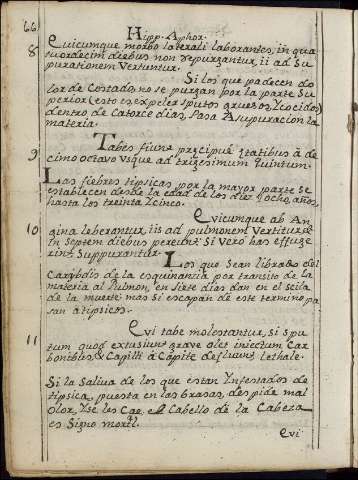 66
Hipp. Aphor.
8 Quicumque morbo laterali laborantes, in qua
tuordecim diebus non repurgantur, ii ad Su
purationem Vertuntur.
Si los que padecen do
lor de Costado, no se purgan por la parte Su
perior (esto es, expeler sputos gruesos, y cocidos)
dentro de Catorce dias, pasa a Supuracion la
materia.
9 Tabes fiunt præcipuè ætatibus à de
cimo octavo usque ad trigesimum quintum.
Las fiebres tipsicas por la mayor parte se
establecen desde la edad de los diez y ocho años,
hasta los treinta y cinco.
10 Quicumque ab An
gina liberantur, iis ad pulmonem Vertitur, et
in septem diebus pereunt: Si Vero has effuge
rint Suppurantur.
Los que Sean librados del
Carybdis de la esquinanzia por transito de la
materia al Pulmon, en Siete dias dan en el scila
de la muerte mas si escapan de este termino pa
san a tipsicos.
11 Qui tabe molestantur, si spu
tum quod extusiunt grave olet iniectum Car
bonibus, & Capilli à Capite defluunt, lethale.
Si la Saliva de los que estan Ynfestados de
tipsica, puesta en las brasas, despide mal
olor, Yse les Cae el Cabello de la Cabeza
es Signo mortl.
Qui